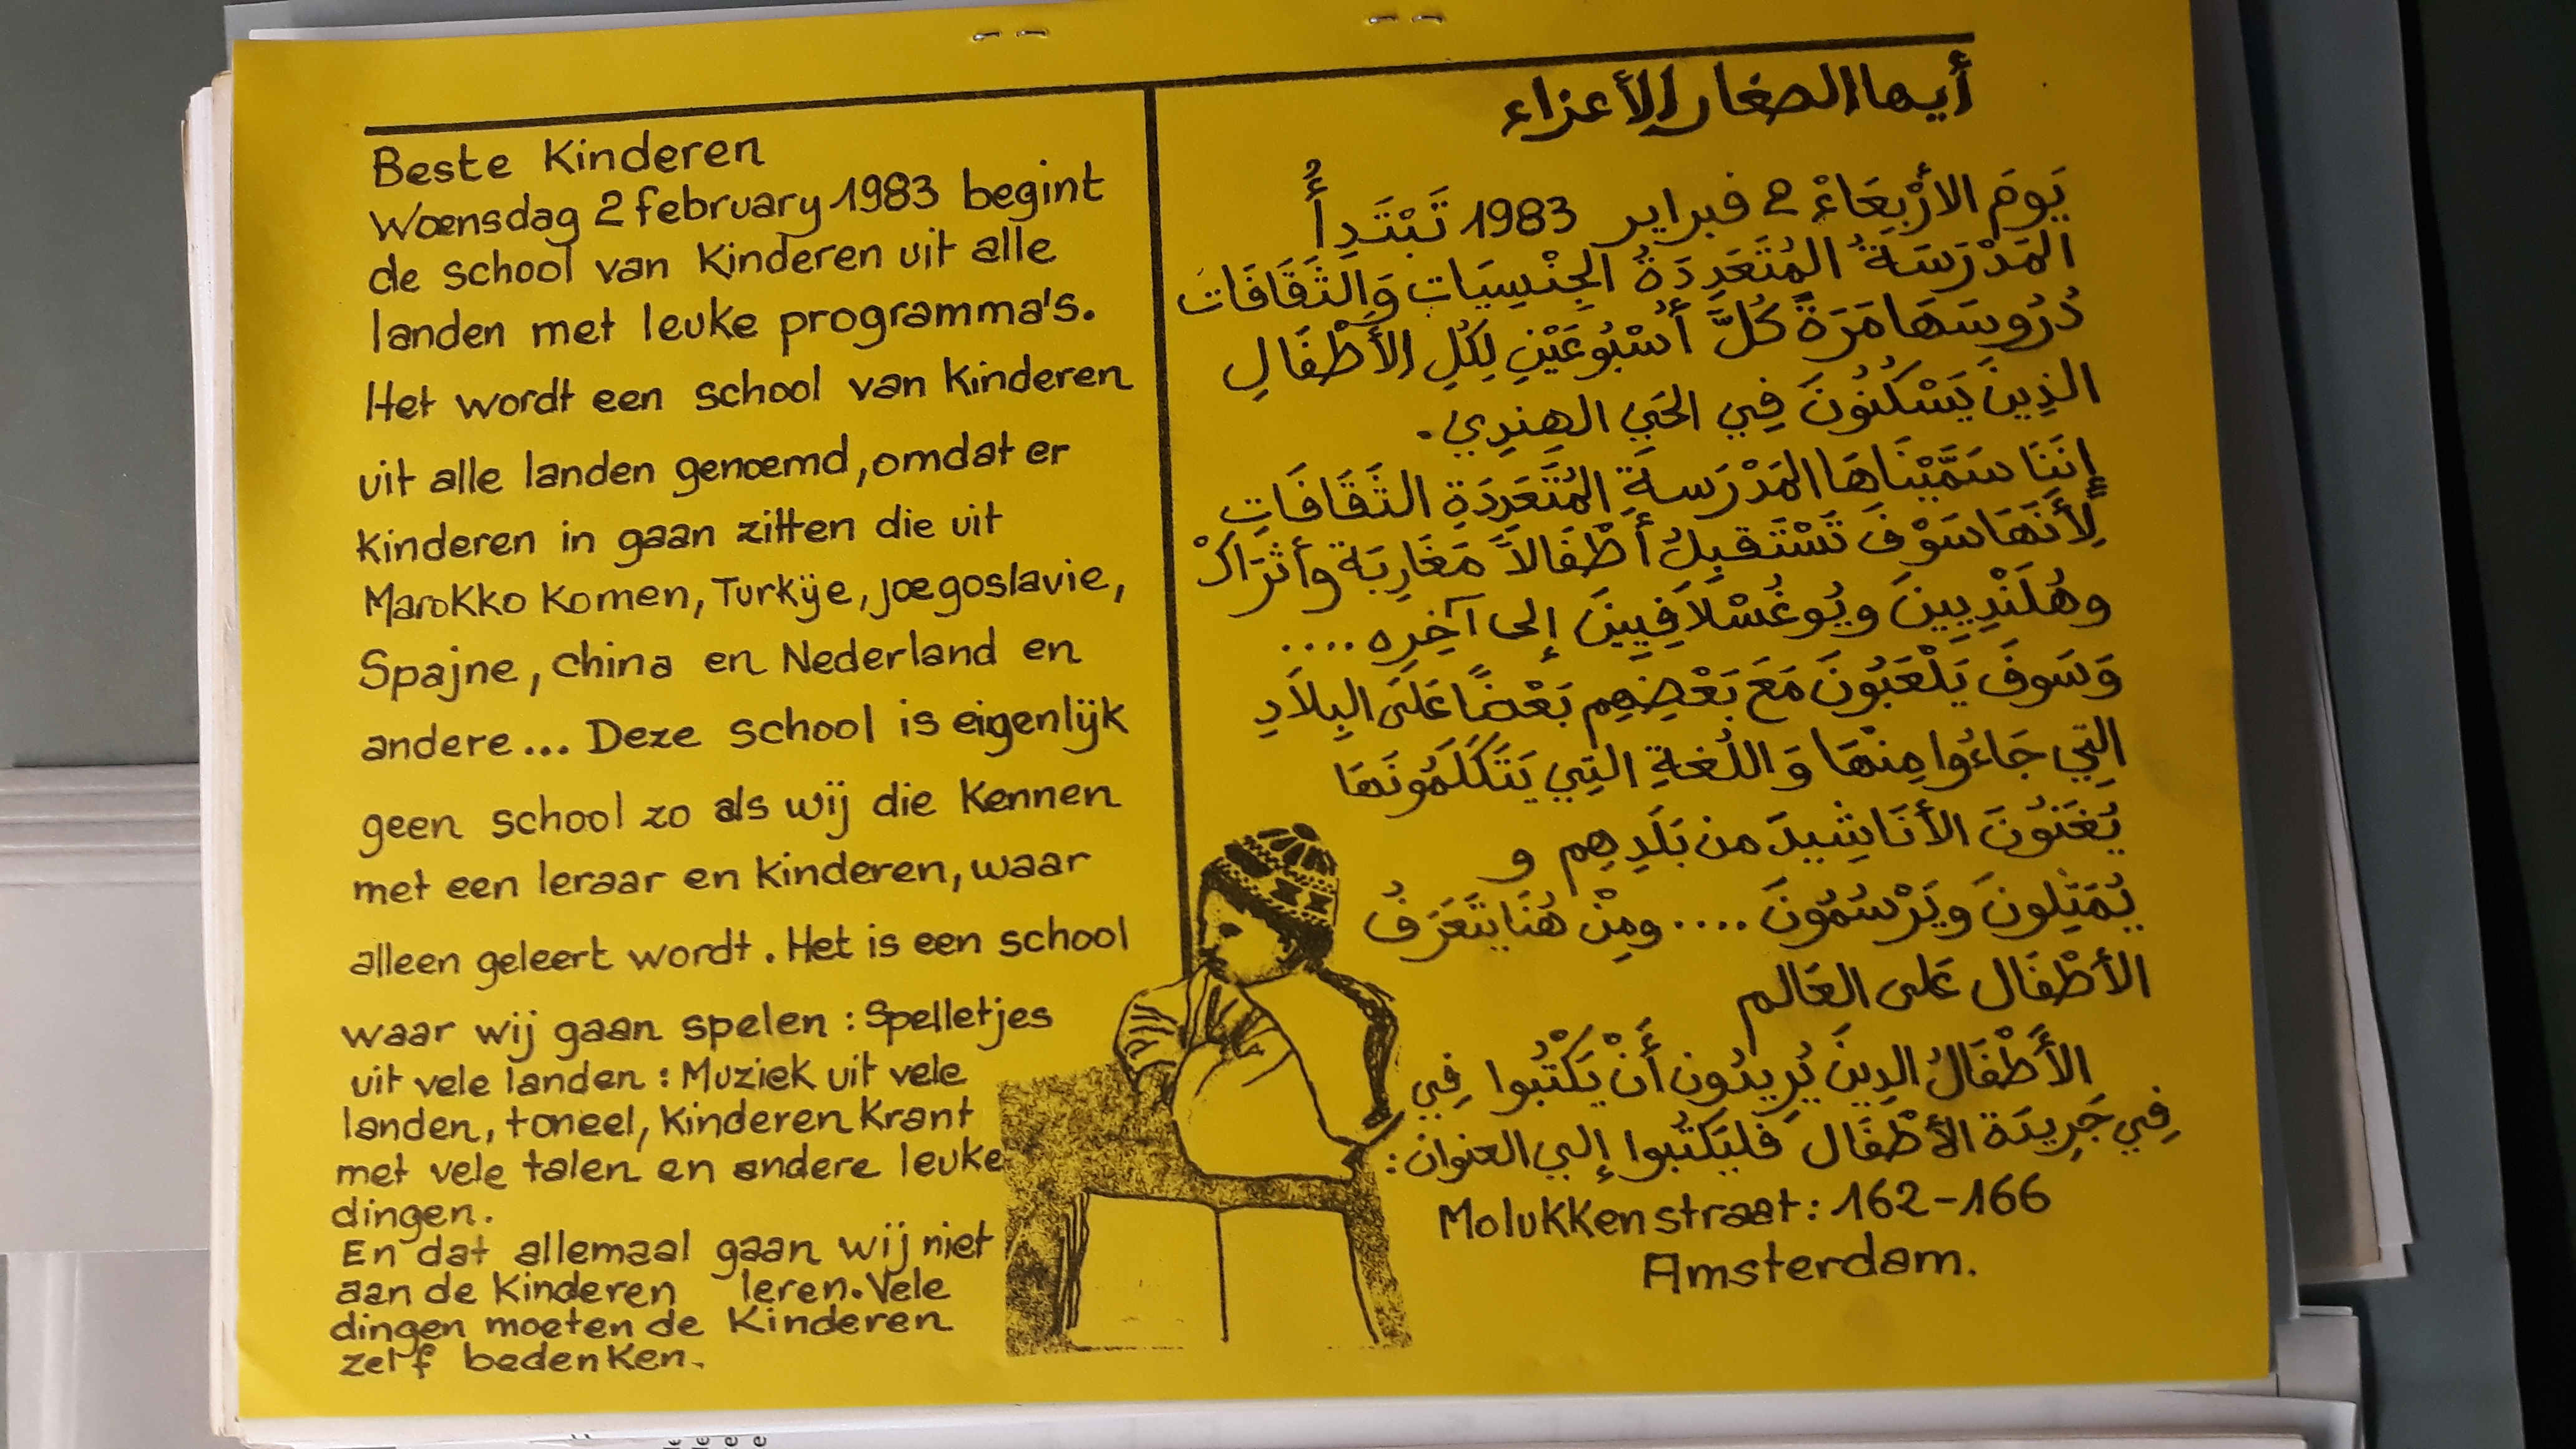 Beste Kinderen
Woensdag 2 february 1983 begint
de school van Kinderen uit alle
landen met leuke programma's.
Het wordt een school van kinderen
uit alle landen genoemd, omdat er
kinderen in gaan zitten die uit
Marokko komen, Turkije, joegoslavie,
Spajne, china en Nederland en
andere... Deze school is eigenlijk
geen school zo als wij die kennen
met een leraar en kinderen, waar
alleen geleert wordt. Het is een school
waar wij gaan spelen: Spelletjes
uit vele landen: Muziek uit vele
landen, toneel, Kinderen krant
met vele talen en andere leuke
dingen.
En dat allemaal gaan wij niet
aan de kinderen leren. Vele
dingen moeten de Kinderen
zelf bedenken.
أيها الصغار الأعزاء
يَوْمَ الأَرْبِعَاءْ 2 فبراير 1983 تَبْتَدِأُ
المَدْرَسَةُ المُتَعَدِّدَةُ الجِنْسِيَاتِ وَالثَقَافَات
دُرُوسَهَا مَرَّةً كُلَّ أُسْبُوعَيْنِ لِكُلِّ الأَطْفَالِ
الذِينَ يَسْكُنُونَ فِي الحَيِّ الهِنْدِي.
إِنَّنَا سَمَّيْنَاهَا المَدْرَسَةَ المُتَعَدِّدَةَ الثَقَافَات
لِأَنَّهَا سَوْفَ تَسْتَقْبِلُ أَطْفَالاً مَغَارِبَة وأَتْرَاكْ
وهُلَنْدِيِينَ ويُوغُسْلاَفِيِينَ إلى آخِرِهِ....
وَسَوفَ يَلْعَبُونَ مَعَ بَعْضِهِم بَعْضًا عَلَى البِلاَدِ
التِي جَاءُوا مِنْهَا وَاللُّغَةِ التِي يَتَكَلَّمُونَهَا
يُغَنُّونَ الأَنَاشِيدَ مِن بَلَدِهِم و
يُمَثِّلُونَ ويَرْسُمُونَ.... ومِنْ هُنَا يَتَعَرَّفُ
الأَطْفَال عَلَى العَالَم
الأَطْفَالُ الذِينَ يُرِيدُونَ أَنْ يَكْتُبُوا فِي
فِي جَرِيدَةِ الأَطْفَال فَلْيَكْتُبُوا إلى العنوان:
Molukkenstraat: 162-166
Amsterdam.